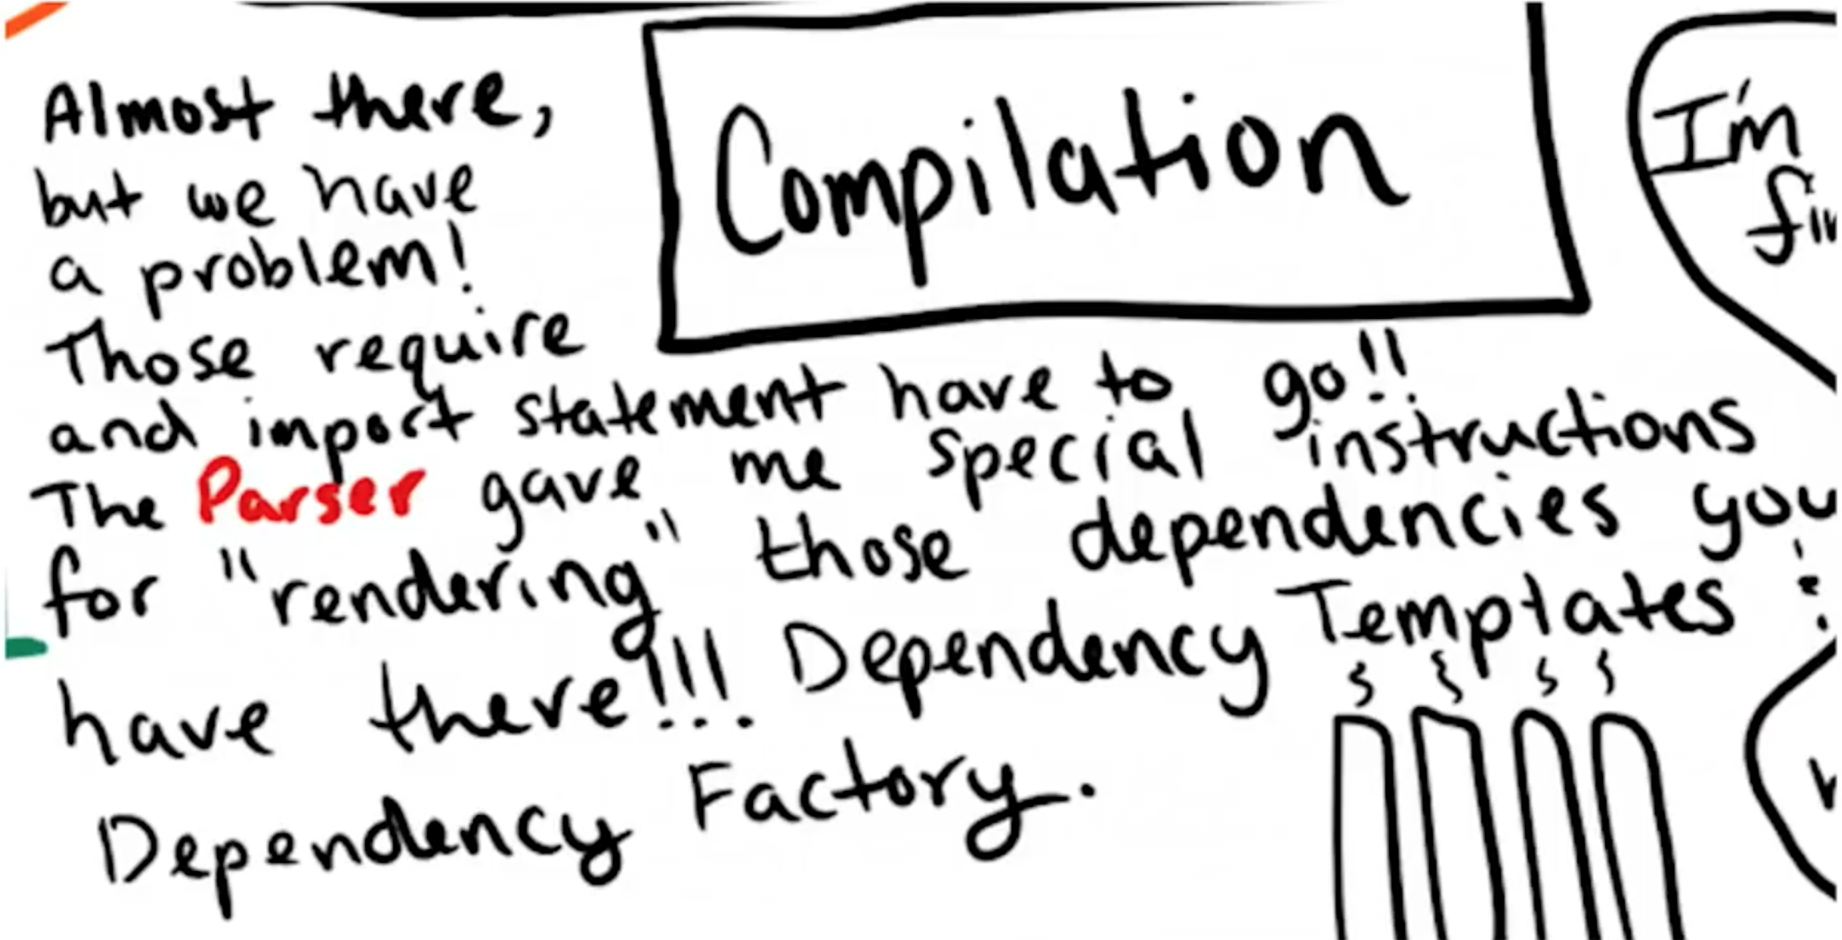 Almost there,
but we have
a problem!
Those require
and import statement have to go!!
The Parser gave me special instructions
for "rendering" those dependencies you
have there!!! Dependency Templates
Dependency Factory.
Compilation
I'm